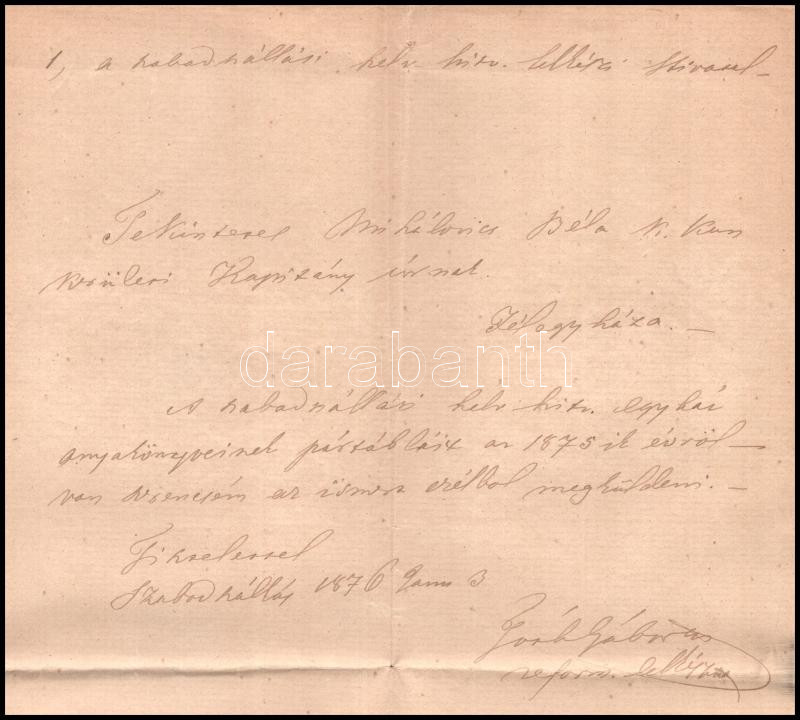 1, a szabadszállási helv. hitv. lelkészi hivatal –
Tekintetes Mihálovics Béla k. Kun
kerületi Kapitány úrnak.
Félegyháza. –
darabanth
A szabadszállási helv. hitv. egyház
anyakönyveinek pártábláit az 1875 ik évről –
van szerencsém az ismert czélból megküldeni. –
Tisztelettel
Szabadszállás 1876 Janu 3
Gábor
reform. lelkész